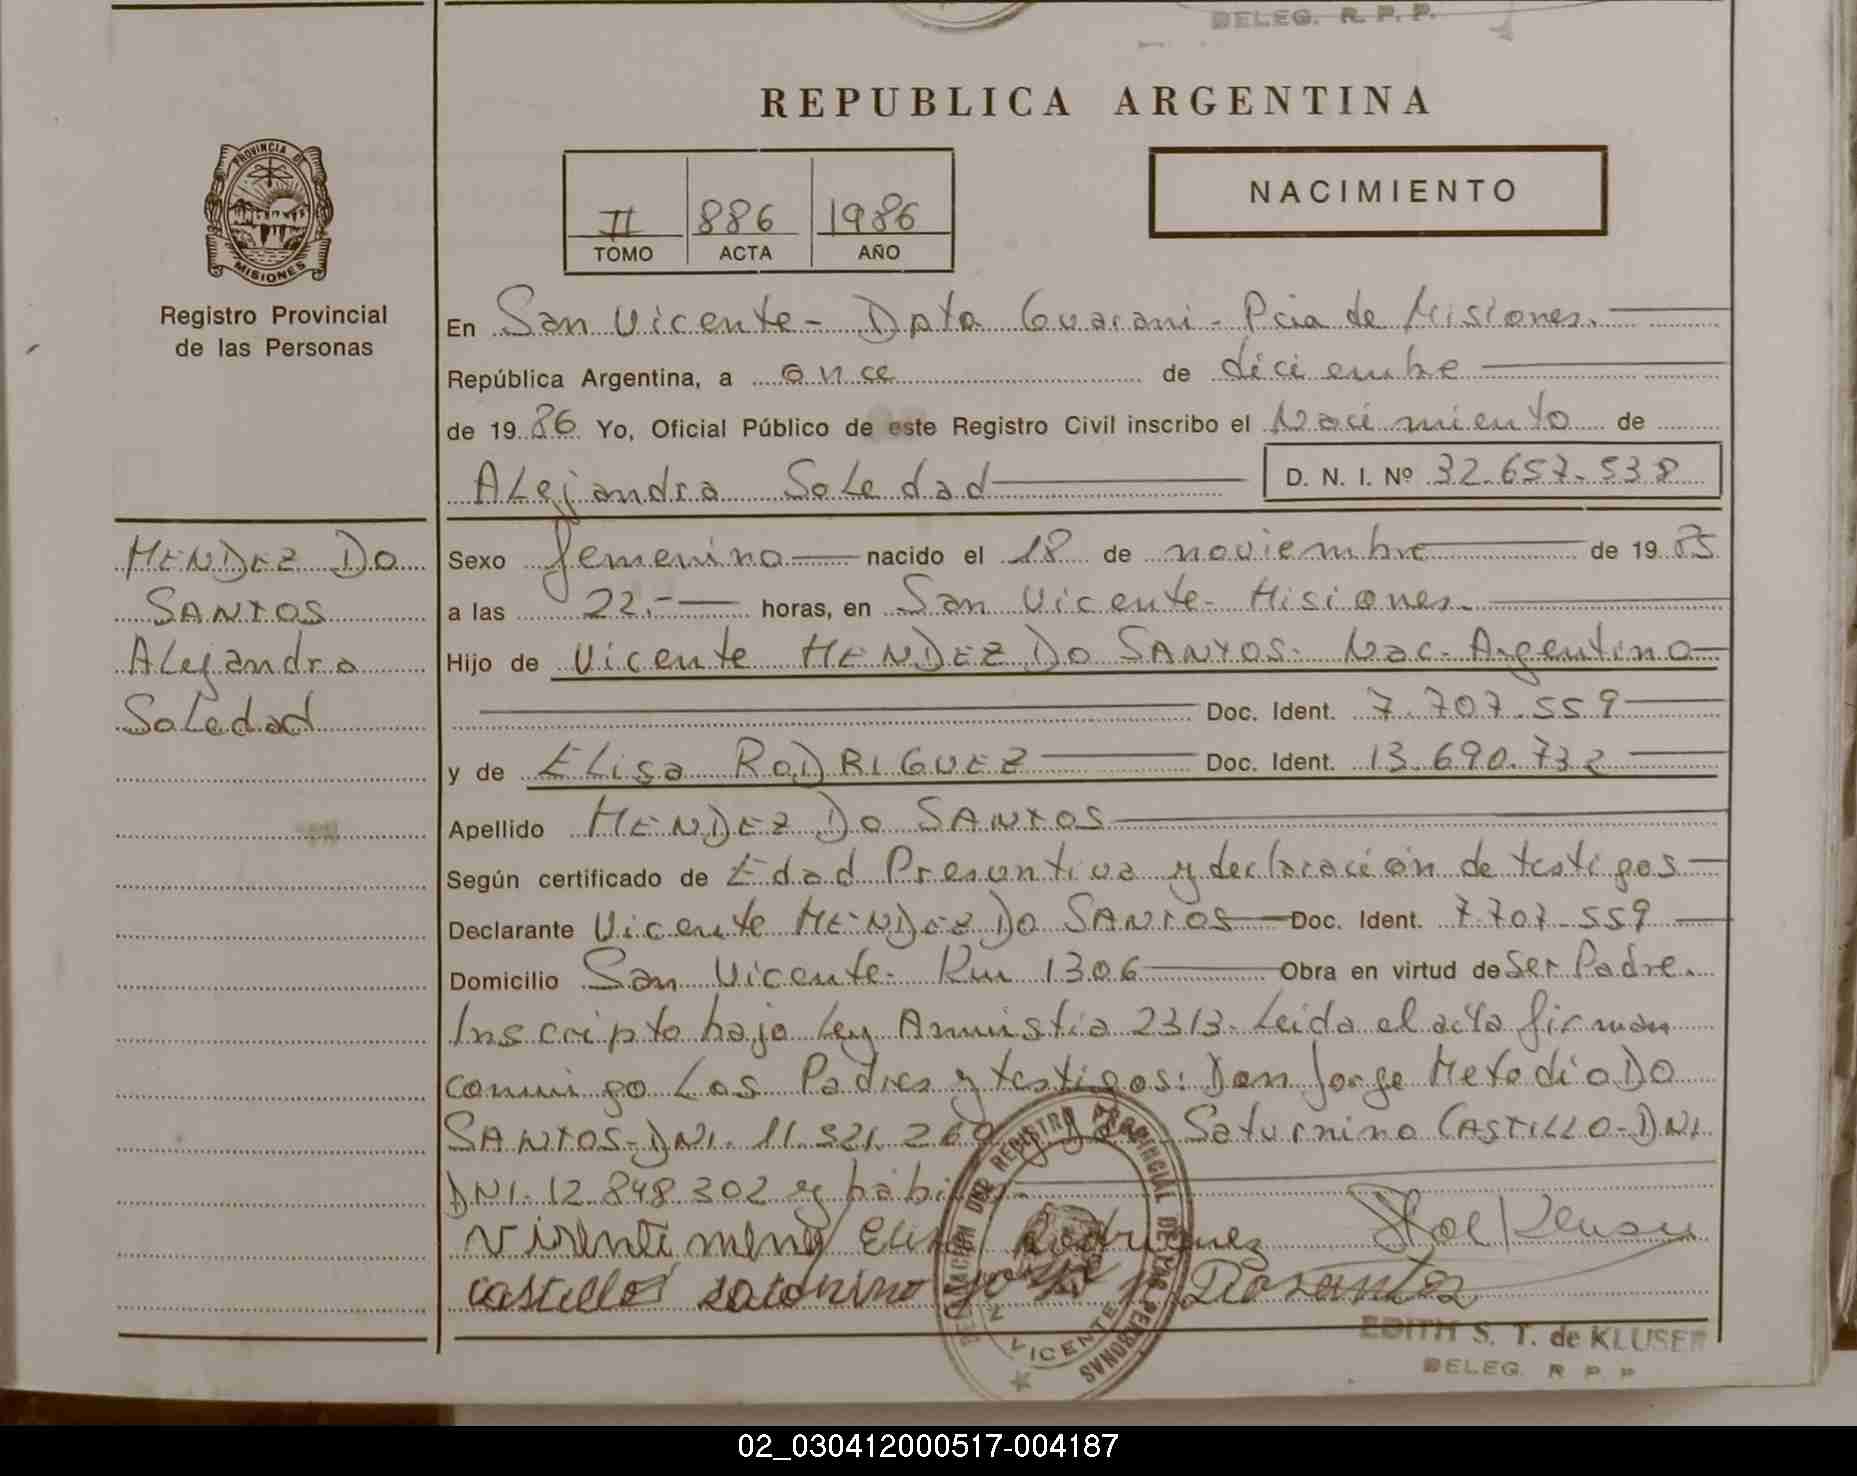 DELEG. R. P. P.
REPUBLICA ARGENTINA
PROVINCIA DE
MISIONES
Registro Provincial
de las Personas
II 886 1986
TOMO ACTA AÑO
NACIMIENTO
En San Vicente - Dpto Guarani - Pcia de Misiones.
República Argentina, a once de diciembre
de 1986 Yo, Oficial Público de este Registro Civil inscribo el Nacimiento de
Alejandra Soledad D. N. I. Nº 32.657.538
MENDEZ DO
SANTOS
Alejandra
Soledad
Sexo femenino nacido el 18 de noviembre de 1985
a las 22.- horas, en San Vicente - Misiones.
Hijo de Vicente MENDEZ DO SANTOS - Nac. Argentino
Doc. Ident. 7.707.559
y de Elisa RODRIGUEZ Doc. Ident. 13.690.732
Apellido MENDEZ DO SANTOS
Según certificado de Edad Presuntiva y declaración de testigos
Declarante Vicente MENDEZ DO SANTOS Doc. Ident. 7.707.559
Domicilio San Vicente - Km 1306 Obra en virtud de Ser Padre.
Inscripto bajo Ley Amnistia 2313 - Leida el acta firman
conmigo Los Padres y testigos: Don Jorge Metodio DO
SANTOS - DNI. 11.321.260 y Don Saturnino CASTILLO - DNI.
DNI. 12.848.302 y habiles.-
Elisa Rodriguez
castillos
EDITH S. T. de KLUSER
DELEG. R P P
VICENTE
02_030412000517-004187